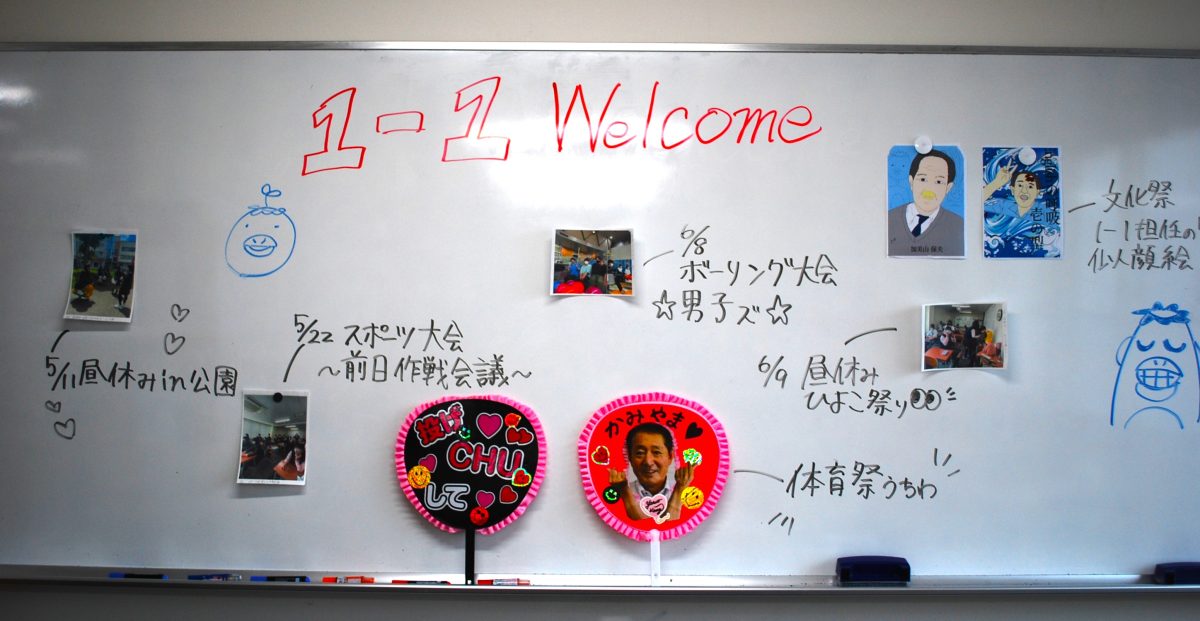 1-1 Welcome
文化祭
1-1担任の
似顔絵
6/8
ボーリング大会
☆男子ズ☆
5/22 スポツ大会
～前日作戦会議～
5/11昼休みin公園
6/9 昼休み
ひよこ祭り
投げ
CHU
して
かみやま
体育祭うちわ
呼吸
壱の型